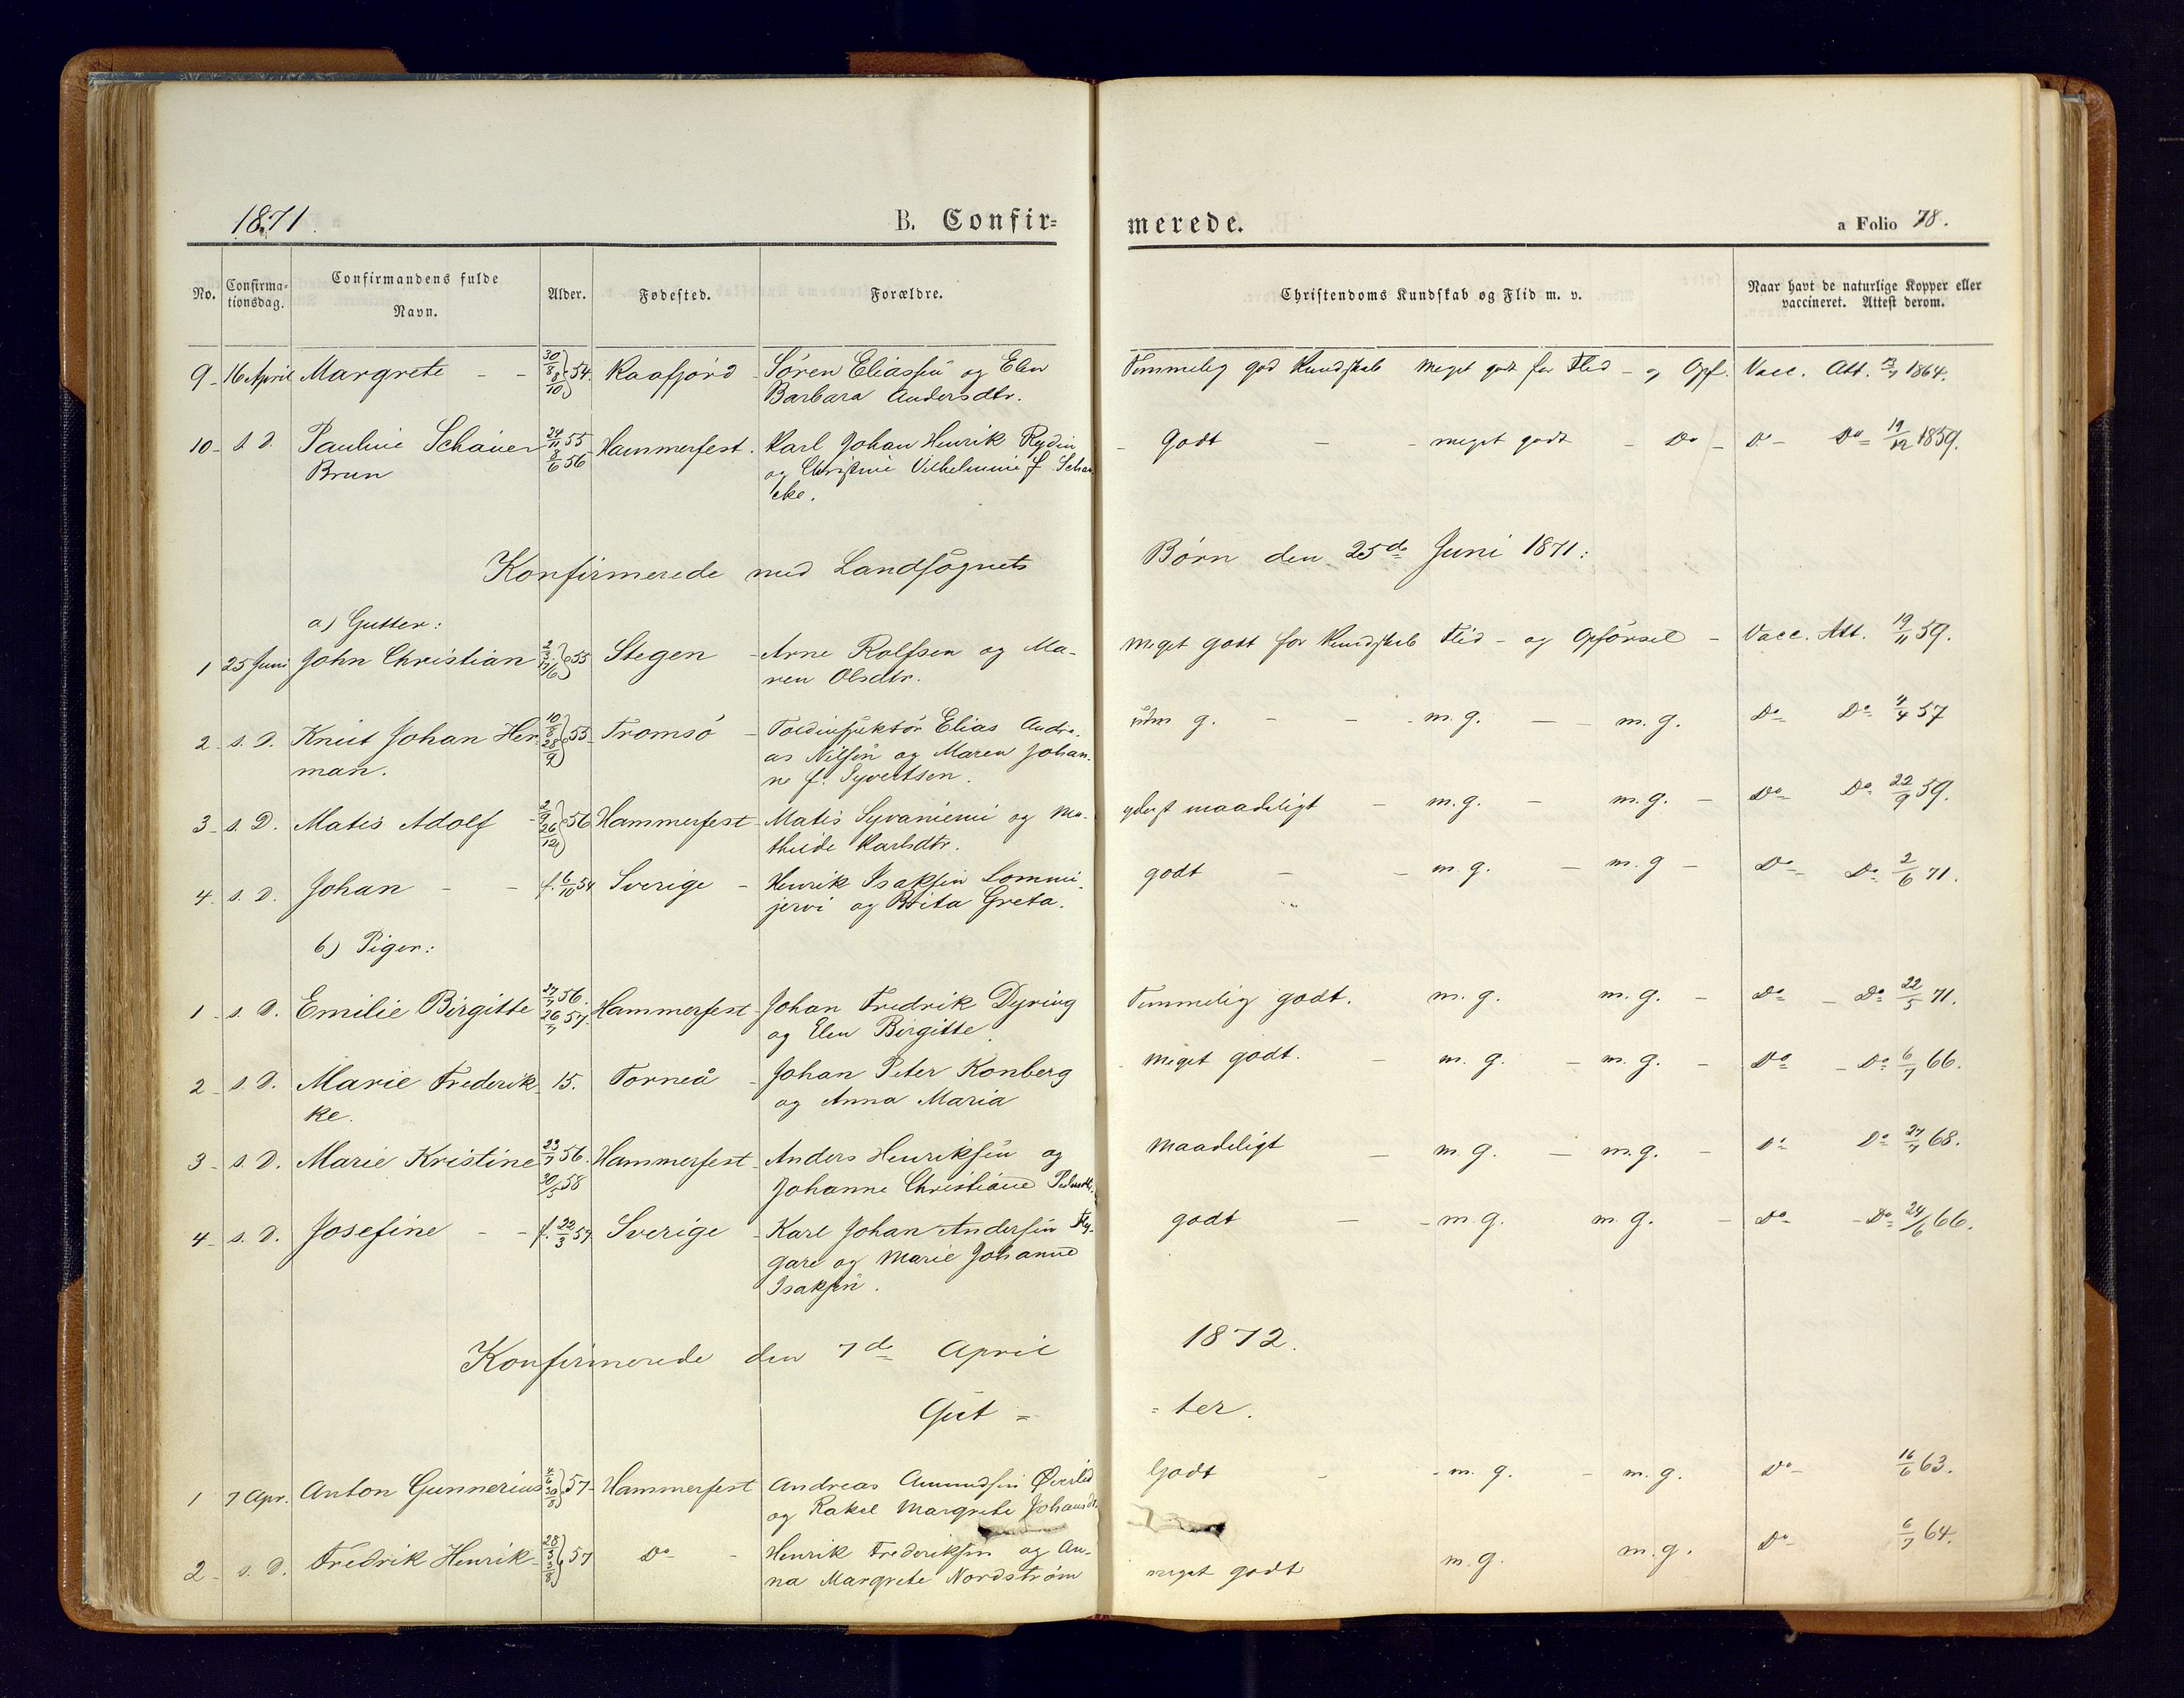 1871.
B. Confir=
merede.
a Folio 78.
No.
Confirma-
tionsdag.
Confirmandens fulde
Navn.
Alder.
Fødested.
Forældre.
Christendoms Kundskab og Flid m. v.
Naar havt de naturlige Kopper eller
vaccineret. Attest derom.
9 - 16 April Margrete - - 30/8 8/10 54. Kaafjord - Søren Eliassen og Elen
Barbara Andersdtr.
Temmelig god Kundskab meget godt for Flid - og Opf. Vacc. Att. 1864.
10 - s. D. Pauline Schaner 24/11 55 8/6 56 Hammerfest. Karl Johan Henrik Rydin
Brun og Christine Vilhelmine f. Schan
cke.
- Godt - - meget godt - Do - D - Do 19/12 1859.
Konfirmerede med Landsognets
Børn den 25de Juni 1871:
a) Gutter:
1 25 Juni John Christian 55 Stegen - Arne Rolfsen og Ma-
ren Olsdtr.
meget godt for Kundskab Flid - og Opførsel - Vacc. Att. 19/11 59.
2 - s. D. Knut Johan Her- 10/8 28/9 55 - Tromsø - Toldinspektør Elias Andre-
man. as Nilsen og Maren Johan-
ne f. Syvertsen.
udm g. - - - m. g. - - m. g. Do Do 57
3 - s. D. Matis Adolf - 2/9 26/12 56 Hammerfest - Matis Syvaniemi og Ma-
thilde Karlsdtr.
yderst maadeligt - m. g. - m. g. - Do Do 22/9 59.
4 - s. D. Johan - - f. 6/10 54 Sverige - Henrik Isaksen Lommi-
jervi og Brita Greta.
godt - - m. g. - m. g - Do Do 2/6 71.
b) Piger:
1 - s. D. Emilie Birgitte 27/7 56. 26/7 57. Hammerfest - Johan Fredrik Dyring
og Elen Birgitte.
Temmelig godt. m. g. m. g. - Do - Do 22/5 71.
2 - s. D. Marie Frederik- 15. Torneå - Johan Peter Konberg
ke. og Anna Maria
- meget godt. - m. g. - m. g. - Do - Do 6/7 66.
3 - s. D. Marie Kristine 23/7 56. 58 Hammerfest - Anders Henriksen og
Johanne Christiane Pedersdtr.
maadeligt - m. g. - m. g. - Do Do 27/7 68.
4 - s. D. Josefine - - f. 22/3 57 Sverige - Karl Johan Andersen Fly-
gare og Marie Johanne
Isaksen.
godt - - m. g. m. g. - Do - Do 24/6 66.
Konfirmerede den 7de April
1872.
Gut =
= ter.
1 7 Apr. Anton Gunnerius 4/6 30/8 57 - Hammerfest Andreas Amundsen Øverlid
og Rakel Margrete Johansdt.
Godt - - m. g. - m. g. Do - 16/6 63.
2 - s. D. Fredrik Henrik - 57 Do - Henrik Frederiksen og An-
na Margrete Nordstrøm
meget godt m. g. m. g. Do - 6/7 64.